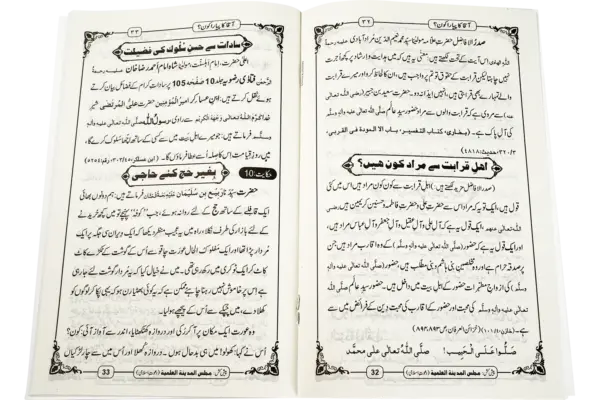 ۳۲
آقا کا پیارا کون؟
صدرُ الافاضل حضرت علامہ مولانا سید محمد نعیم الدین مراد آبادی علیہ رحمۃ
اللہ الھادی اس آیت کے تحت لکھتے ہیں: معنی یہ ہیں کہ میں ہدایت و ارشاد پر کچھ اُجرت
نہیں چاہتا لیکن قرابت کے حقوق تو تم پر واجب ہیں، ان کا لحاظ کرو اور میرے قرابت
والے تمہارے بھی قرابتی ہیں، انہیں ایذا نہ دو۔ حضرت سعید بن جبیر (رضی اللہ تعالٰی
عنہ) سے مروی ہے کہ قرابت والوں سے مراد حضور سیدِ عالم صلی اللہ تعالٰی علیہ واٰلہ وسلم
کی آلِ پاک ہے۔ (بخاری، کتاب التفسیر، باب الا المودۃ فی القربی،
۳۲۰/۳، حدیث: ۴۸۱۸)
اہلِ قرابت سے مراد کون ہیں؟
(صدر الافاضل مزید لکھتے ہیں:) اہلِ قرابت سے کون کون مراد ہیں اس میں کئی
قول ہیں، ایک تو یہ کہ مراد اس سے حضرت علی و حضرت فاطمہ و حسنین کریمین ہیں (رضی
اللہ تعالٰی عنہم)، ایک قول یہ ہے کہ آلِ علی و آلِ عقیل و آلِ جعفر و آلِ عباس مراد ہیں،
اور ایک قول یہ ہے کہ حضور (صلی اللہ تعالٰی علیہ واٰلہ وسلم) کے وہ اقارب مراد ہیں جن
پر صدقہ حرام ہے اور وہ مخلصین بنی ہاشم و بنی مطلب ہیں، حضور (صلی اللہ تعالٰی علیہ واٰلہ
وسلم) کی ازواجِ مطہرات حضور کے اہلِ بیت میں داخل ہیں۔ حضور سیدِ عالم صلی اللہ
تعالٰی علیہ واٰلہ وسلم کی محبت اور حضور کے اقارب کی محبت دین کے فرائض میں سے
ہے۔ (خازن، ۱۰۱/۴) (خزائن العرفان، ص ۸۹۳،۸۹۴)
صَلُّوْا عَلَی الْحَبِیْب! صلَّی اللہُ تعالٰی علٰی محمَّد
پیش کش: مجلس المدینۃ العلمیۃ (دعوتِ اسلامی)
32
آقا کا پیارا کون؟
۳۳
سادات سے حسنِ سلوک کی فضیلت
اعلیٰ حضرت، امامِ اہلسنت، مولانا شاہ امام احمد رضا خان علیہ رحمۃ
الرحمٰن فتاوٰی رضویہ جلد 10 صفحہ 105 پر ساداتِ کرام کے فضائل بیان کرتے
ہوئے نقل کرتے ہیں: ابنِ عساکر امیر المؤمنین حضرت علی المرتضٰی شیرِ
خدا کرم اللہ تعالٰی وجہہ الکریم سے راوی، رسول اللہ صلی اللہ تعالٰی علیہ واٰلہ
وسلم فرماتے ہیں: جو میرے اہلِ بیت میں سے کسی کے ساتھ اچھا سلوک کرے گا،
میں روزِ قیامت اس کا صلہ اُسے عطا فرماؤں گا۔ (ابن عساکر،
حکایت: 10
بغیر حج کئے حاجی
حضرت سیدنا ربیع بن سلیمان
فرماتے ہیں: ہم دونوں بھائی
ایک قافلے کے ساتھ حج کے لئے روانہ ہوئے، جب ”کوفہ“ پہنچے تو میں کچھ خریدنے
کے لئے بازار کی طرف نکلا، راہ میں یہ عجیب منظر دیکھا کہ ایک ویران سی جگہ پر ایک
مُردار پڑا تھا اور ایک مفلوک الحال عورت چاقو سے اُس کے گوشت کے ٹکڑے کاٹ
کاٹ کر ایک ٹوکری میں رکھ رہی تھی۔ میں نے خیال کیا کہ یہ مُردار گوشت لئے جا رہی
ہے اس پر خاموش نہیں رہنا چاہئے ممکن ہے کہ یہ کوئی بھٹیارن ہو کہ یہی پکا کر لوگوں کو
کھلا دے، میں چپکے سے اُس کے پیچھے ہولیا۔
وہ عورت ایک مکان پر آ کر رُکی اور دروازہ کھٹکھٹایا، اندر سے آواز آئی: کون؟
اُس نے کہا: کھولو! میں ہی بدحال ہوں۔ دروازہ کُھلا اور اُس میں سے چار لڑکیاں
پیش کش: مجلس المدینۃ العلمیۃ (دعوتِ اسلامی)
33